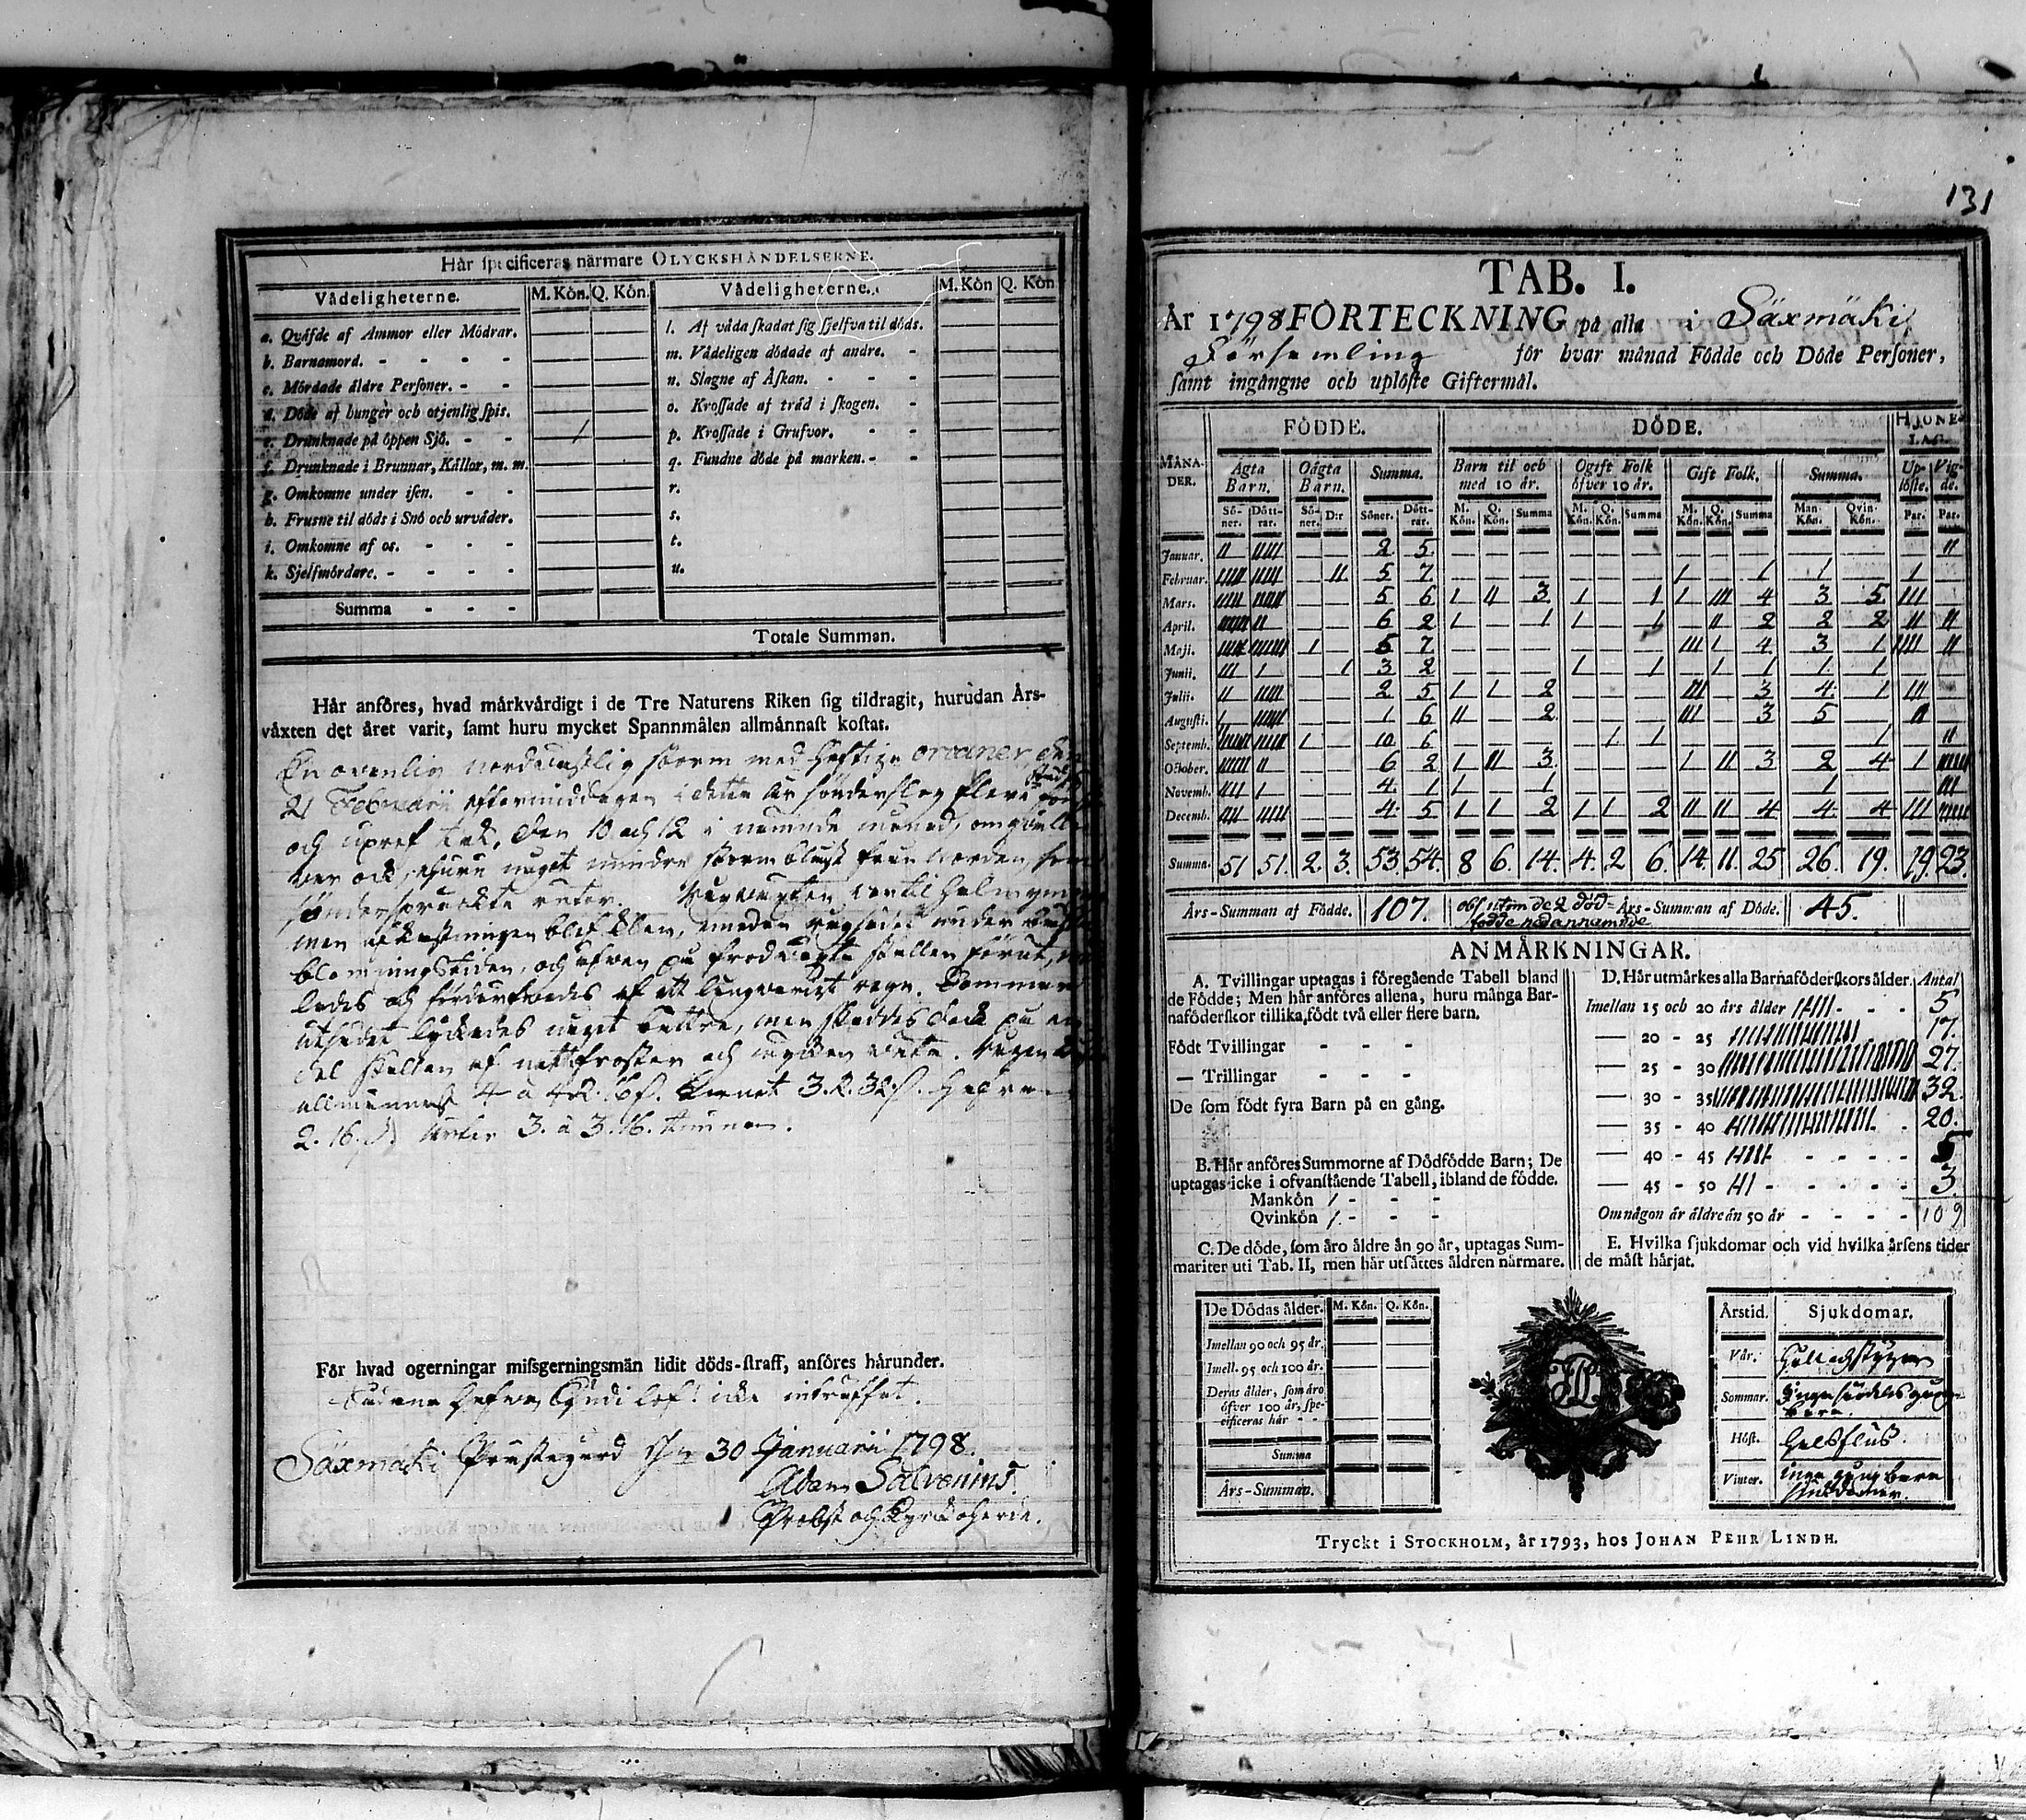 Här specificeras närmare OLYCKSHÄNDELSERNE.
Vådeligheterne. M. Kön. Q. Kön. Vådeligheterne. M. Kön Q. Kön
a. Qväfde af Ammor eller Mödrar. l. Af våda skadat sig sjelfva til döds.
b. Barnamord. - - - - m. Vådeligen dödade af andre. -
c. Mördade äldre Personer. - - n. Slagne af Åskan. - - -
d. Döde af hunger och otjenlig spis. o. Krossade af träd i skogen. -
e. Drunknade på öppen Sjö. - - 1 p. Krossade i Grufvor. - -
f. Drunknade i Brunnar, Källor, m. m. q. Fundne döde på marken. - -
g. Omkomne under isen. - - r.
h. Frusne til döds i Snö och urväder. s.
i. Omkomne af os. - - - t.
k. Sjelfmördare. - - - - u.
Summa - - -
Totale Summan.
Här anföres, hvad märkvärdigt i de Tre Naturens Riken sig tildragit, hurudan Års-
växten det året varit, samt huru mycket Spannmålen allmännast kostat.
En ovenlig nordvästlig storm med häftige orcaner, den
21 Februarii eftermiddagen i detta år sönderslog flere
och upref tak. Den 10 och 12 i nämnde månad,
något mindre storm norden,
men afkastningen blef klen, medan rågsädet under
blomningstiden, och
af ett långvarigt regn.
utsädet lyckades något bättre, men skaddes dock på en
del ställen af nattfroster och mycken väta. Rågen
allmännast 4 à 4 R. 16 s. Kornet 3 R. 32 s.
2. 16. s. 3. à 3. 16. tunnan.
För hvad ogerningar missgerningsmän lidit döds-straff, anföres härunder.
Sådana hafva Gudi lof! icke inträffat.
Säxmäki Prästegård d. 30 Januarii 1798.
Adam Salvenius.
Probst och Kyrkoherde.
131
TAB. I.
År 1798 FÖRTECKNING på alla i Säxmäki
Församling för hvar månad Födde och Döde Personer,
samt ingångne och uplöste Giftermål.
FÖDDE. DÖDE. HJONE-LAG.
MÅNADER. Ägta Barn. Oägta Barn. Summa. Barn til och med 10 år. Ogift Folk öfver 10 år. Gift Folk. Summa. Up-löste. Vig-de.
Sö-ner. Dött-rar. Sö-ner. D:r Söner. Dött-rar. M. Kön. Q. Kön. Summa M. Kön. Q. Kön. Summa M. Kön. Q. Kön. Summa Man-Kön. Qvin-Kön. Par. Par.
Januar. II IIIII — — 2 5 — — — — — — — — — — — — II
Februar. IIIII IIIII — II 5 7 — — — — — — 1 — 1 1 — 1 —
Mars. IIIII IIIIII — — 5 6 1 II 3 1 — 1 1 III 4 3 5 III —
April. IIIIII II — — 6 2 1 — 1 1 — 1 — II 2 2 2 II II
Maji. IIII IIIIIII 1 — 5 7 — — — — — — III 1 4 3 1 IIII II
Junii. III 1 — 1 3 2 — — — 1 — 1 — 1 1 1 1 — —
Julii. II IIIII — — 2 5 1 1 2 — — — III — 3 4 1 III —
Augusti. 1 IIIIII — — 1 6 II — 2 — — — III — 3 5 — II —
Septemb. IIIIIIIII IIIIII 1 — 10 6 — — — — 1 1 — — — — 1 — II
October. IIIIII II — — 6 2 1 II 3 — — — 1 II 3 2 4 1 IIIIII
Novemb. IIII 1 — — 4 1 1 — 1 — — — — — — 1 — — III
Decemb. IIII IIIII — — 4 5 1 1 2 1 1 2 II II 4 4 4 III IIIIII
Summa. 51 51. 2. 3. 53. 54. 8 6. 14. 4. 2 6. 14. 11. 25 26. 19. 19. 23.
Års-Summan af Födde. 107. obs utom de 2 död= Års-Summan af Döde. 45.
födde nedannämnde
ANMÄRKNINGAR.
A. Tvillingar uptagas i föregående Tabell bland
de Födde; Men här anföres allena, huru många Bar-
naföderskor tillika födt två eller flere barn.
Födt Tvillingar - - -
— Trillingar - - -
De som födt fyra Barn på en gång.
B. Här anföres Summorne af Dödfödde Barn; De
uptagas icke i ofvanstående Tabell, ibland de födde.
Mankön 1 - - -
Qvinkön 1. - - -
C. De döde, som äro äldre än 90 år, uptagas Sum-
mariter uti Tab. II, men här utsättes åldren närmare.
D. Här utmärkes alla Barnaföderskors ålder. Antal
Imellan 15 och 20 års ålder IIIII - - - 5
— 20 - 25 17.
— 25 - 30 27.
— 30 - 35 32.
— 35 - 40 20.
— 40 - 45 IIIII - - - - 5
— 45 - 50 III - - - - - 3.
Om någon är äldre än 50 år - - - - 109
E. Hvilka sjukdomar och vid hvilka årsens tider
de mäst härjat.
De Dödas ålder. M. Kön. Q. Kön.
Imellan 90 och 95 år.
Imell. 95 och 100 år.
Deras ålder, som äro
öfver 100 år, spe-
cificeras här - -
Summa
Års-Summan.
Årstid. Sjukdomar.
Vår. Håll och styng
Sommar. Inga särdeles gång-
bara.
Höst. Halsflus.
Vinter. inga gångbara
sjukdomar.
Tryckt i STOCKHOLM, år 1793, hos JOHAN PEHR LINDH.